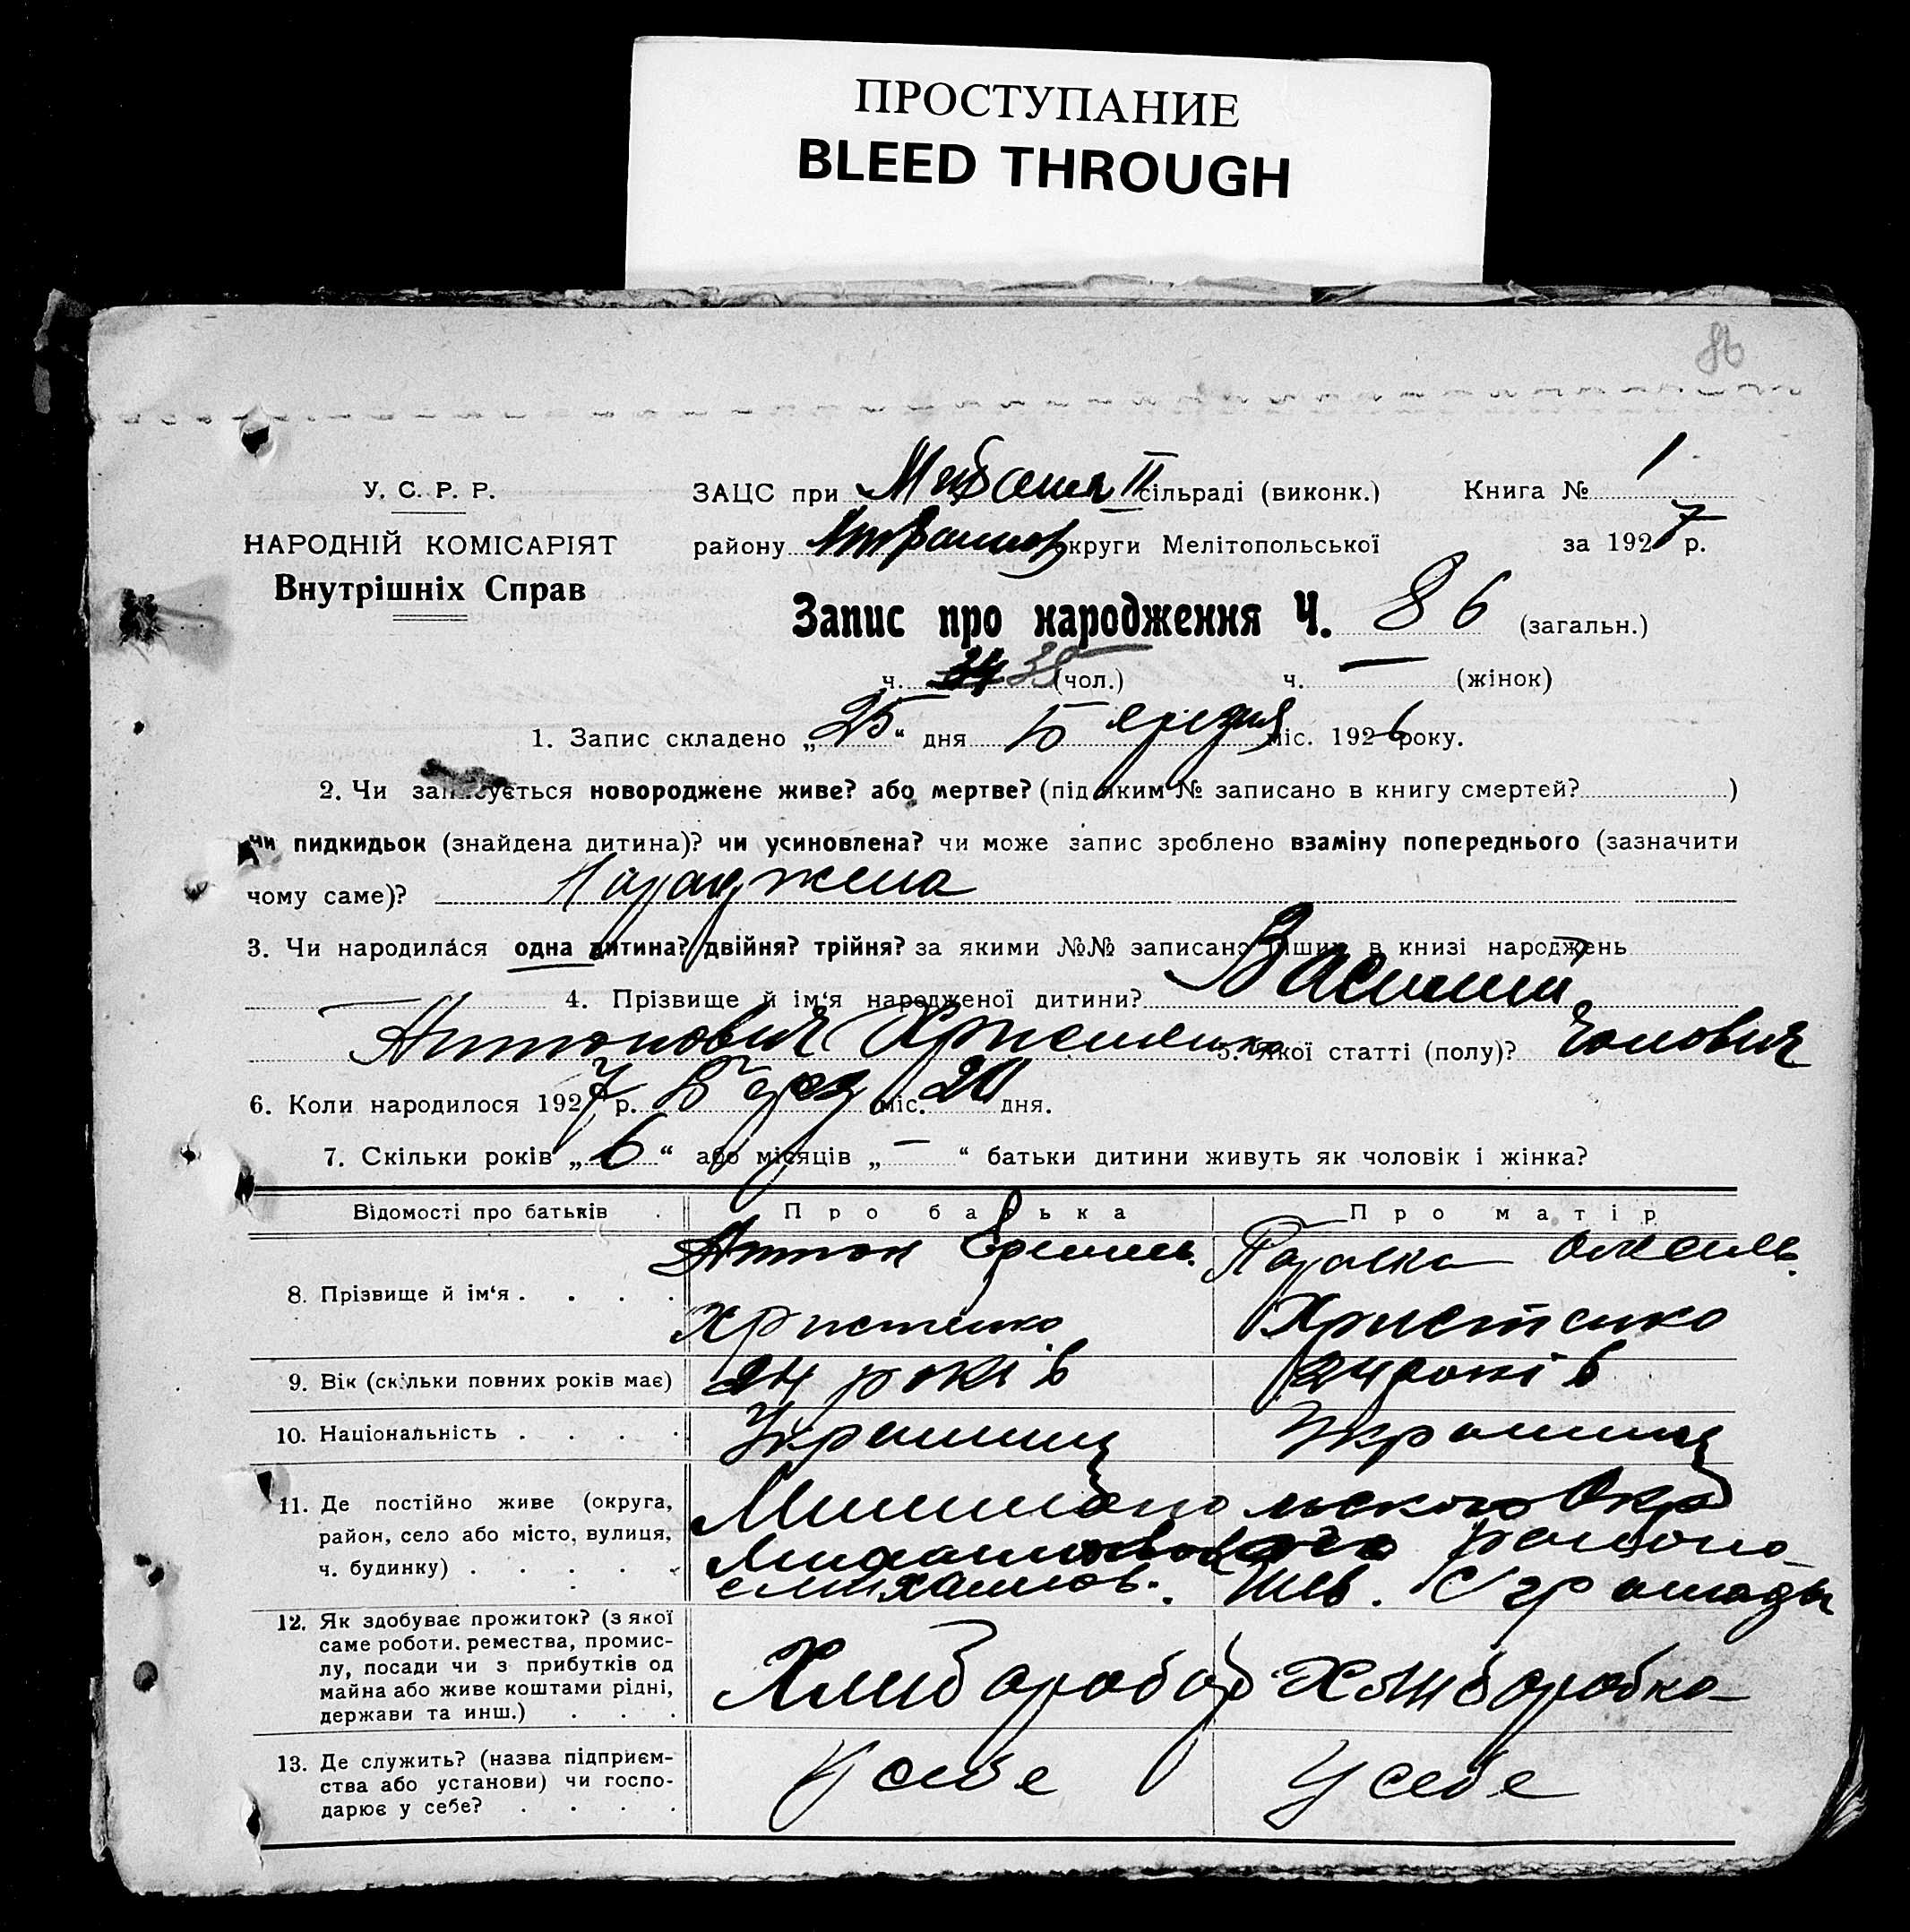 ПРОСТУПАНИЕ
BLEED THROUGH
86
У. С. Р. Р.
НАРОДНІЙ КОМІСАРІЯТ
Внутрішніх Справ
ЗАЦС при II сільраді (виконк.) Книга № 1
району округи Мелітопольської за 1927 р.
Запис про народження Ч. 86 (загальн.)
ч. 34 35 (чол.) ч. — (жінок)
1. Запис складено „25“ дня міс. 1926 року.
2. Чи записується новороджене живе? або мертве? (під яким № записано в книгу смертей? )
чи пидкидьок (знайдена дитина)? чи усиновлена? чи може запис зроблено взаміну попереднього (зазначити
чому саме)? Народжена
3. Чи народилася одна дитина? двійня? трійня? за якими №№ записано інших в книзі народжень
4. Прізвище й ім‘я народженої дитини? Василий
Антонович Христенько 5. Якої статті (полу)? Чолович
6. Коли народилося 1927 р. міс. 20 дня.
7. Скільки років „6“ або місяців „—“ батьки дитини живуть як чоловік і жінка?
Відомості про батьків Про батька Про матір
8. Прізвище й ім‘я . . . . Антон Параска
Христенко Христенко
9. Вік (скільки повних років має) 24 років 24 років
10. Національність . . . . Украинец Украинец
11. Де постійно живе (округа,
район, село або місто, вулиця,
ч. будинку) . . . . .
12. Як здобуває прожиток? (з якої
саме роботи. ремества, промис-
лу, посади чи з прибутків од
майна або живе коштами рідні,
держави та инш.) . . . Хлибороб Хлиборобка
13. Де служить? (назва підприєм-
ства або установи) чи госпо-
дарює у себе? . . . . У себе У себе